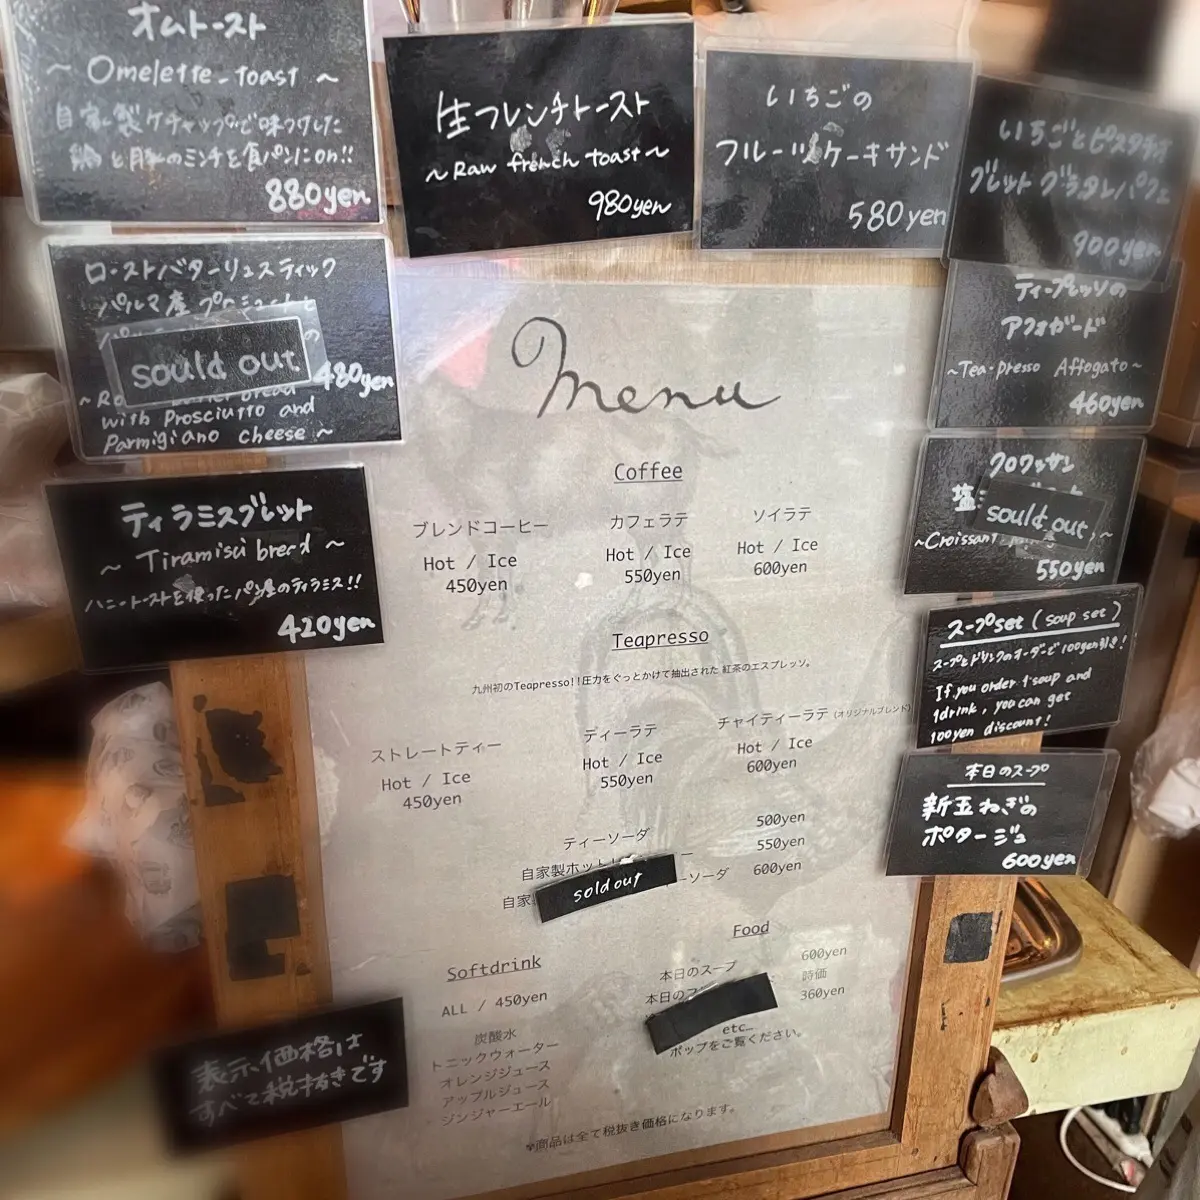 オムトースト
~ Omelette-toast ~
自家製ケチャップで味つけした
鶏と豚のミンチを食パンにon!!
880yen
生フレンチトースト
~Raw french toast~
980yen
いちごの
フルーツケーキサンド
580yen
いちごとピスタチオ
ブレットグラタンパフェ
900yen
ローストバターリュスティック
パルマ産プロシュートと
sould out
480yen
with Prosciutto and
Parmigiano cheese ~
ティープレッソの
アフォガード
~Tea-presso Affogato~
460yen
ティラミスブレット
~ Tiramisu bread ~
ハニートーストを使ったパン屋のティラミス!!
420yen
クロワッサン
塩
sould out
~Croissant
550yen
スープset (soup set)
スープとドリンクのオーダーで100yen引き!
If you order 1soup and
1drink, you can get
100yen discount!
本日のスープ
新玉ねぎの
ポタージュ
600yen
Menu
Coffee
ブレンドコーヒー カフェラテ ソイラテ
Hot / Ice Hot / Ice Hot / Ice
450yen 550yen 600yen
Teapresso
九州初のTeapresso!!圧力をぐっとかけて抽出された 紅茶のエスプレッソ。
ストレートティー ティーラテ チャイティーラテ (オリジナルブレンド)
Hot / Ice Hot / Ice Hot / Ice
450yen 550yen 600yen
ティーソーダ 500yen
自家製ホット 550yen
自家 ーソーダ 600yen
sold out
Softdrink
ALL / 450yen
炭酸水
トニックウォーター
オレンジジュース
アップルジュース
ジンジャーエール
Food
本日のスープ 600yen
本日の 時価
360yen
etc…
ポップをご覧ください。
※商品は全て税抜き価格になります。
表示価格は
すべて税抜きです